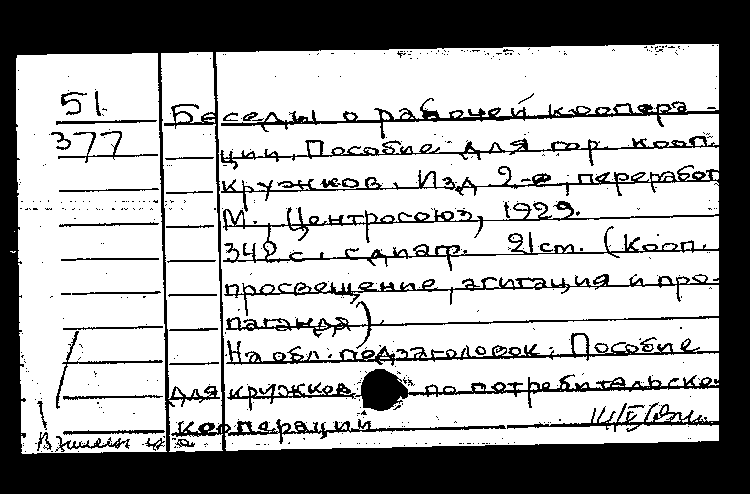 51
377
Беседы о рабочей коопера-
ции. Пособие для гор. кооп.
кружков. Изд 2-е, переработ
М., Центросоюз, 1929.
342 с. с диагр. 21 cm. (Кооп.
просвещение, агитация и про-
паганда)
На обл. подзаголовок: Пособие
для кружков по потребительско
кооперации